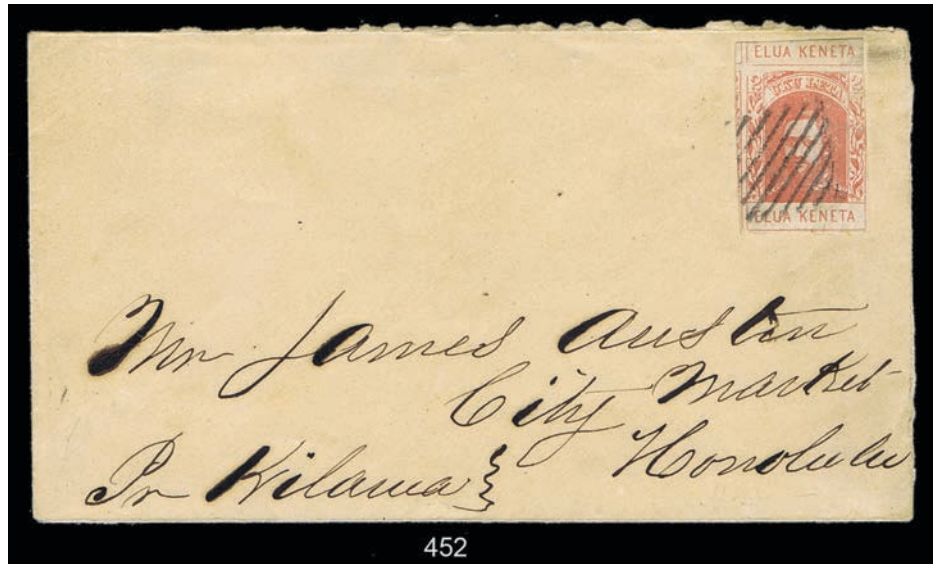 ELUA KENETA
UKU LETA
ELUA KENETA
Mr James Austin
City Market
Honolulu
Pr Kilauea
452